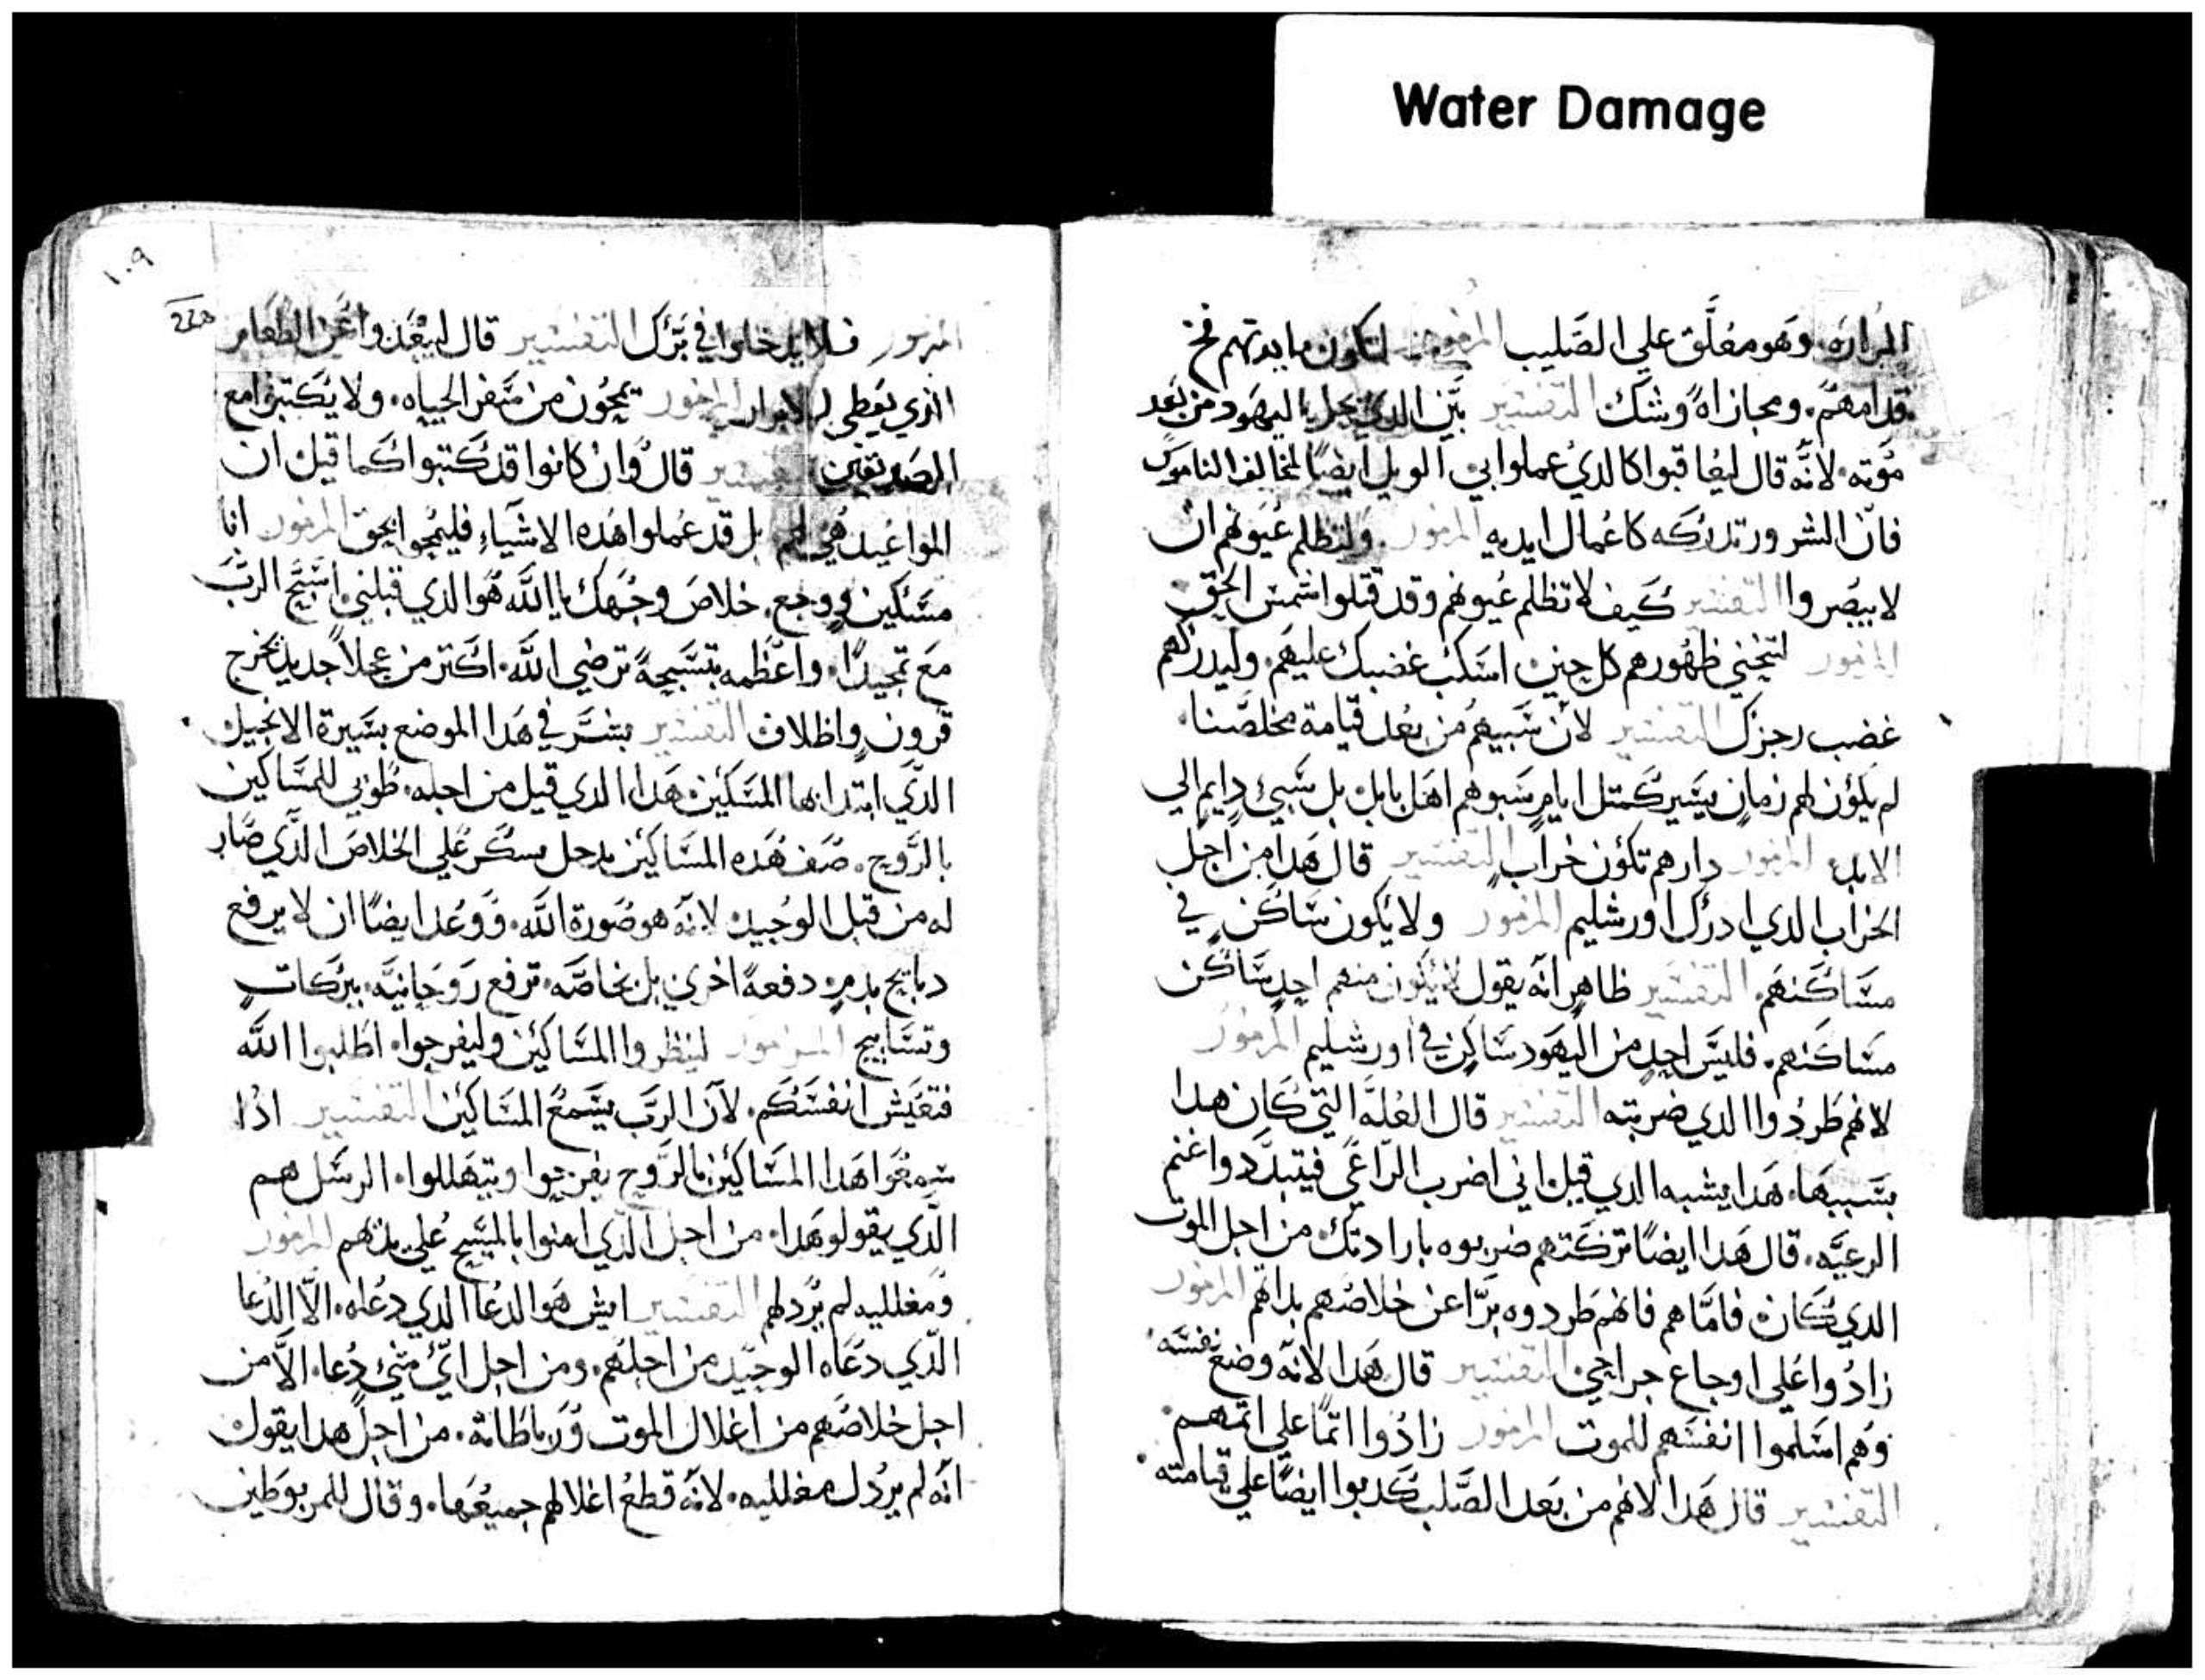 Water Damage
المراره وهو معلَّق علي الصَليب المزمور لتكون مايدتهم فخ
قدامهم. ومجازاهً وشك التفسير بيّن الدي يحل باليهود من بعد
مَوته. لانَّه قال ليعاقبوا كالدي عملوا بي الويل ايضًا لمخالف الناموس
فانّ الشرور تدركه كاعمال ايديه المزمور ولتظلم عيونهم ان
لا يبصروا التفسير كيف لا تظلم عيونهم وقد قتلوا شمس الحق
المزمور لتحني ظهورهم كل حين اسكب غضبك عليهم. وليدركهم
غضب رجزك التفسير لان سبيهم من بعد قيامة مخلصنا.
لم يكون لهم زمان يسير كمتل ايام سبوهم اهل بابل بل سبي دايم الي
الابد المزمور دارهم تكون خراب التفسير قال هدا من اجل
الخراب الدي ادرك اورشليم المزمور ولا يكون ساكن في
مساكنهم. التفسير ظاهر انه يقول لا يكون منهم احد ساكن
مساكنهم. فليس احد من اليهود ساكن في اورشليم المزمور
لانهم طردوا الدي ضربته التفسير قال العلّه التي كان هدا
بسببها. هدا يشبه الدي قيل اني اضرب الراعي فيتبدّدوا غنم
الرعيّه. قال هدا ايضًا تركتهم ضربوه بارادتك من اجل الموت
الدي كان فامّا هم فانهم طردوه برّا عن خلاصهم بداتهم المزمور
زادوا علي اوجاع جراحي التفسير قال هدا لانه وضع نفسه
وهم اسلموا انفسهم للموت المزمور زادوا اتمًا علي اتمهم.
التفسير قال هدا لانهم من بعد الصَلب كدبوا ايضًا علي قيامته.
١٠٩
المزمور فلا يدخلوا في برّك التفسير قال ليبعدوا عن الطعام
الذي يعطي للابرار المزمور يمحون من سفر الحياه. ولا يكتبوا مع
الصديقين التفسير قال وان كانوا قد كتبوا كما قيل ان
المواعيد هي لهم بل قد عملوا هده الاشياء فليمحوا بحق المزمور انا
مسكين ووجع. خلاص وجهك يا الله هو الدي قبلني اسبّح الربّ
مع تمجيدًا. واعظمه بتسبحة ترضي الله. اكتر من عجلاً جديد يخرج
قرون واظلاف التفسير بشّر في هدا الموضع بسيرة الانجيل
الدّي ابتداها المسكين هدا الدي قيل من اجله. طوبي للمساكين
بالرّوح. صف هده المساكين يدخل يسكر علي الخلاص الدّي صار
له من قبل الوحيد لانّه هو صورة الله. ووعد ايضًا ان لا يرفع
دبايح بدم دفعهً اخري بل بخاصّه. ترفع روحانيّه. ببركات
وتسابيح المزمور لينظروا المساكين وليفرحوا. اطلبوا الله
فتعيش انفسكم. لانّ الربّ يسمع المساكين التفسير ادا
سمعوا هدا المساكين بالرّوح يفرحوا ويتهللوا. الرسل هم
الّدي يقولو هدا. من اجل الدّي امنوا بالمسيح علي يدهم المزمور
ومغلليه لم يردلهم التفسير ايش هو الدعا الدي دعاه. الاّ الدعا
الّدي دعاه الوحيد من اجلهم. ومن اجل ايّ شي دعا. الاّ من
اجل خلاصهم من اغلال الموت ورباطاته. من اجل هدا يقول
انه لم يردل مغلليه. لانّه قطع اغلالهم جميعها. وقال للمربوطين